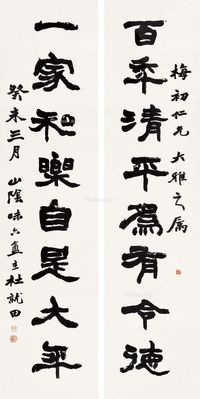 梅初仁兄 大雅之属
百年清平为有令德
一家和乐自是大年
癸未三月 山阴味六盦主杜就田